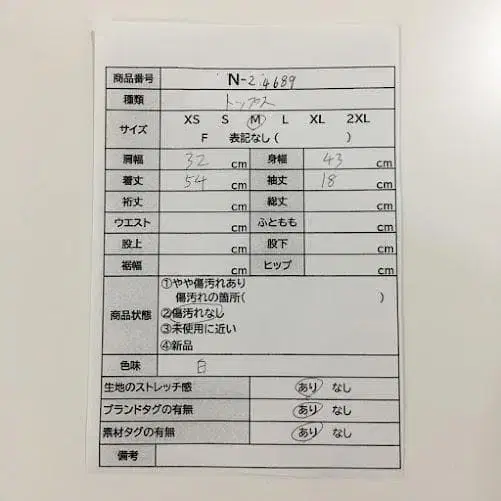 商品番号 N-2.4689
種類 トップス
サイズ XS S M L XL 2XL
F 表記なし( )
肩幅 32 cm 身幅 43 cm
着丈 54 cm 袖丈 18 cm
裄丈 cm 総丈 cm
ウエスト cm ふともも cm
股上 cm 股下 cm
裾幅 cm ヒップ cm
商品状態 ①やや傷汚れあり
傷汚れの箇所( )
②傷汚れなし
③未使用に近い
④新品
色味 白
生地のストレッチ感 あり なし
ブランドタグの有無 あり なし
素材タグの有無 あり なし
備考